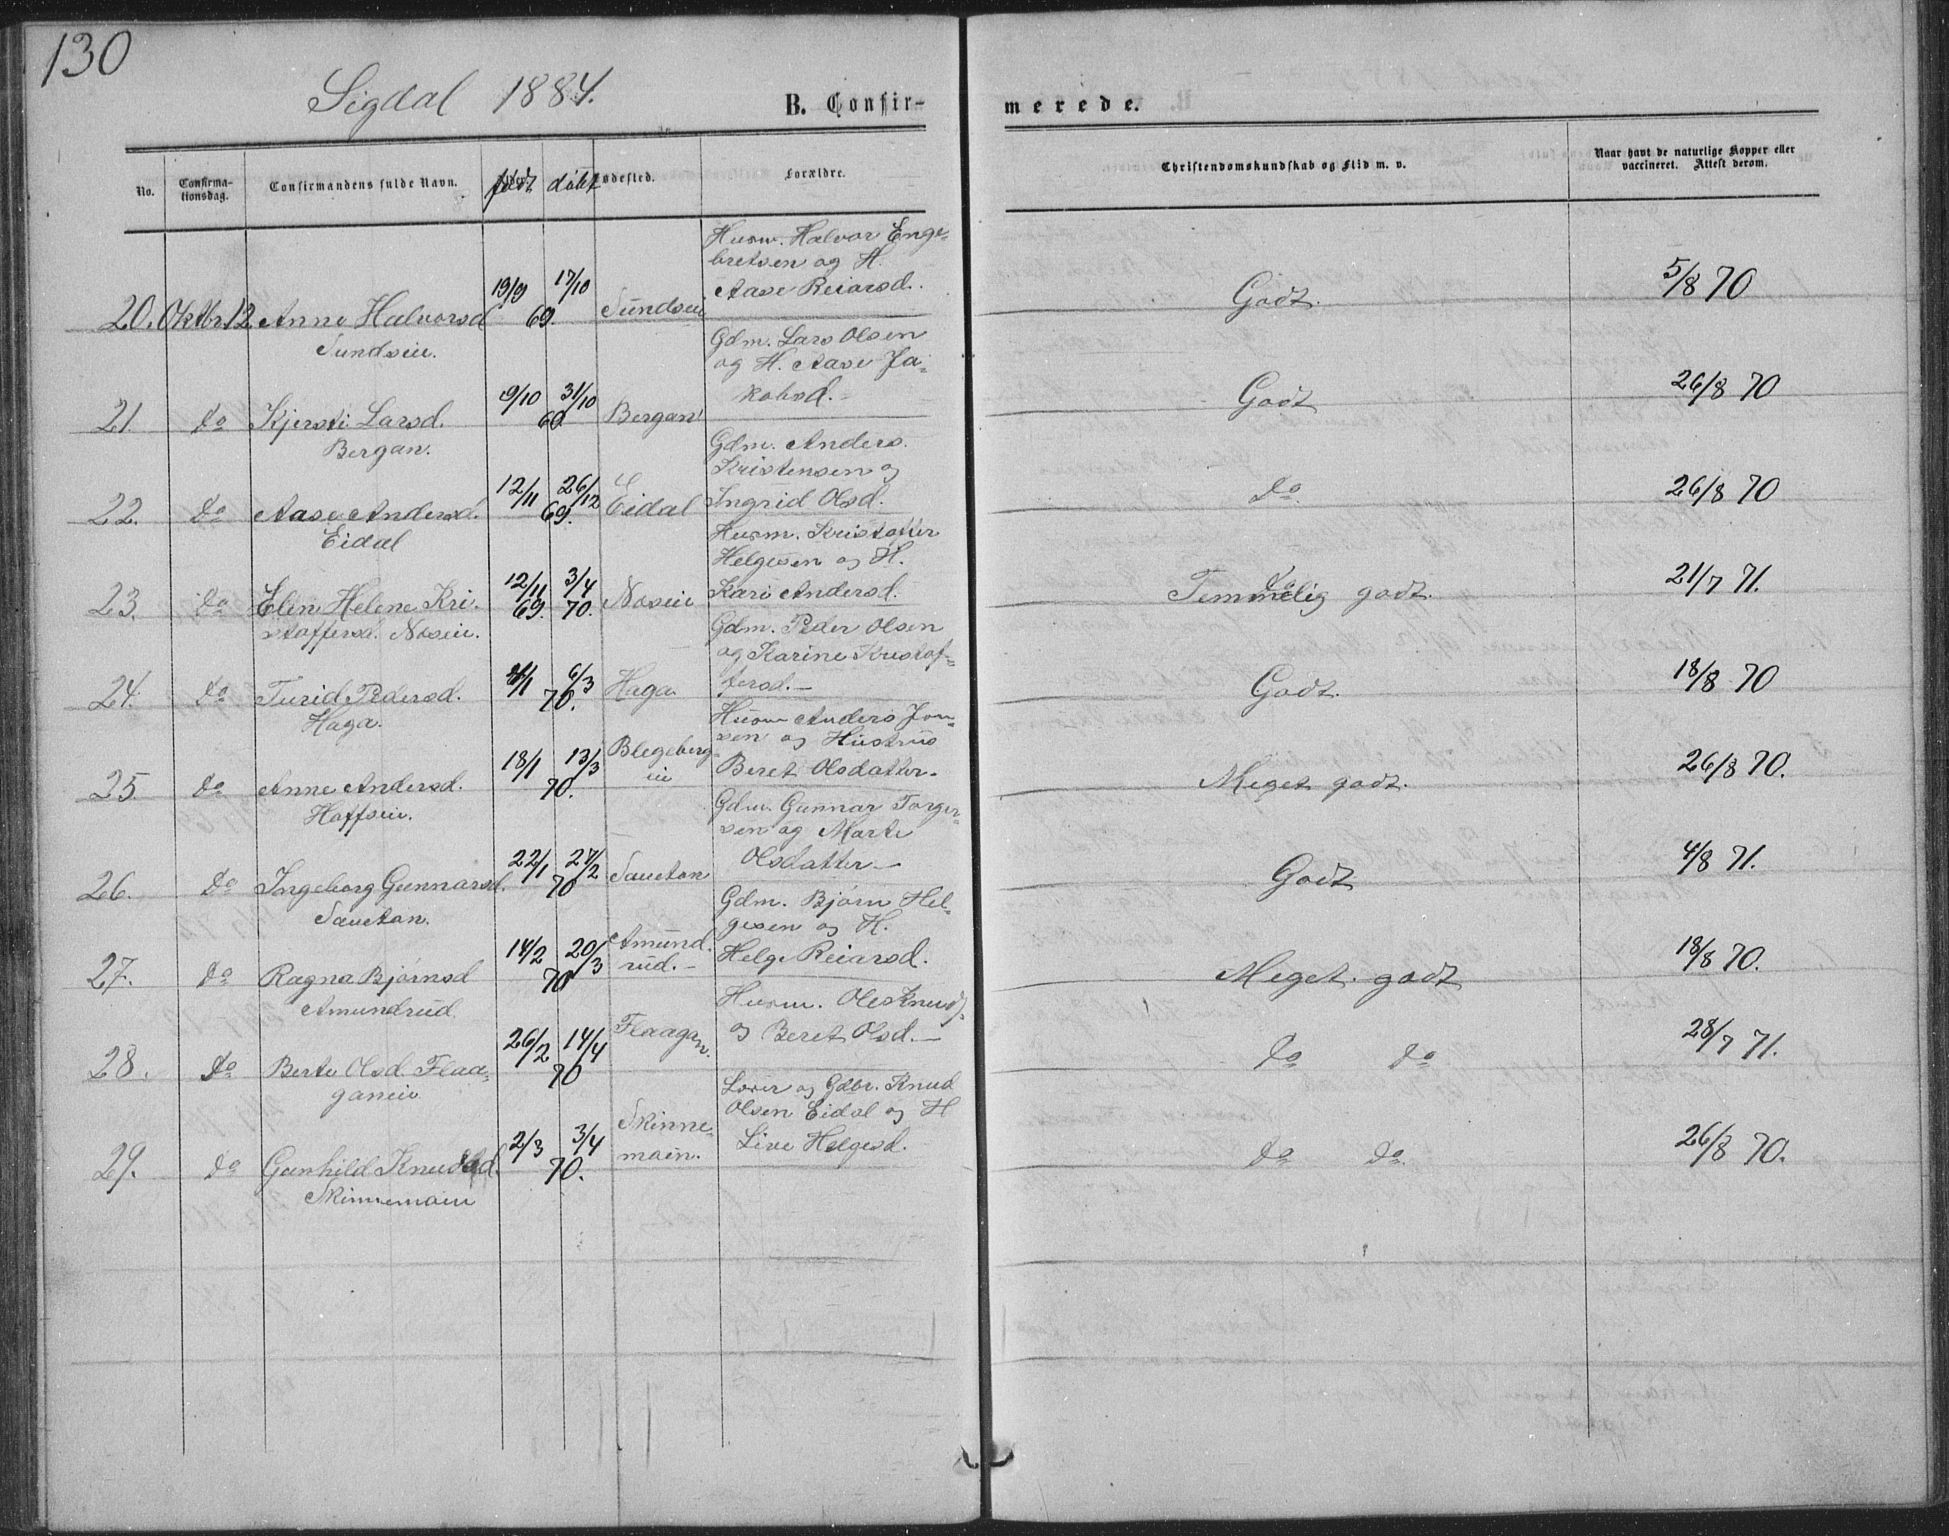 130
Sigdal 1884.
B. Confir-
merede.
No.
Confirma-
tionsdag.
Confirmandens fulde Navn.
født
døbt
Fødested.
Forældre.
Christendomskundskab og Flid m. v.
Naar havt de naturlige Kopper eller
vaccineret. Attest derom.
Husm. Halvor Enge-
bretsen og H.
Aase Reiarsd.
20. Oktbr. 12. Anne Halvorsd
Sundseie.
19/9 17/10
69.
Sundseie
Godt.
5/8 70
Gdm. Lars Olsen
og H. Aase Ja-
kobsd.
21. do Kjersti Larsd.
Bergan.
9/10 31/10
69.
Bergan
Godt
26/8 70
Gdm. Anders
Kristensen og
Ingrid Olsd.
22. do Aase Andersd.
Eidal
12/11 26/12
69.
Eidal
do
26/8 70
Husm. Kristoffer
Helgesen og H.
Kari Andersd.
23. do Elen Helene Kri-
stoffersd. Noseie.
12/11 3/4
69. 70.
Noseie
Temmelig godt.
21/7 71.
Gdm. Peder Olsen
og Karine Kristof-
fersd.
24. do Turid Pedersd.
Haga.
6/3
70.
Haga
Godt.
18/8 70
Husm Anders Jon-
sen og Hustru
Beret Olsdatter.
25 do Anne Andersd.
Hoffseie.
18/1 13/3
70.
Blegeberg-
eie
Meget godt.
26/8 70.
Gdm. Gunnar Torger-
sen og Marte
Olsdatter.
26. do Ingeborg Gunnarsd.
Saueton.
22/1 27/2
70
Saueton
Godt
4/8 71.
Gdm. Bjørn Hel-
gesen og H.
Helge Reiarsd.
27. do Ragna Bjørnsd
Amundrud
14/2 20/3
70
Amund-
rud.
Meget godt
18/8 70.
Husm. Ole Knuds.
og Beret Olsd.
28. do Berte Olsd. Flaa-
ganeie
26/2 14/4
70
Flaagan.
do do
28/7 71.
Lærer og Gdbr. Knud
Olsen Eidal og H
Live Helgesd.
29. do Gunhild Knudsd.
Skinnemoen
2/3 3/4
70.
Skinne-
moen.
do do
26/8 70.